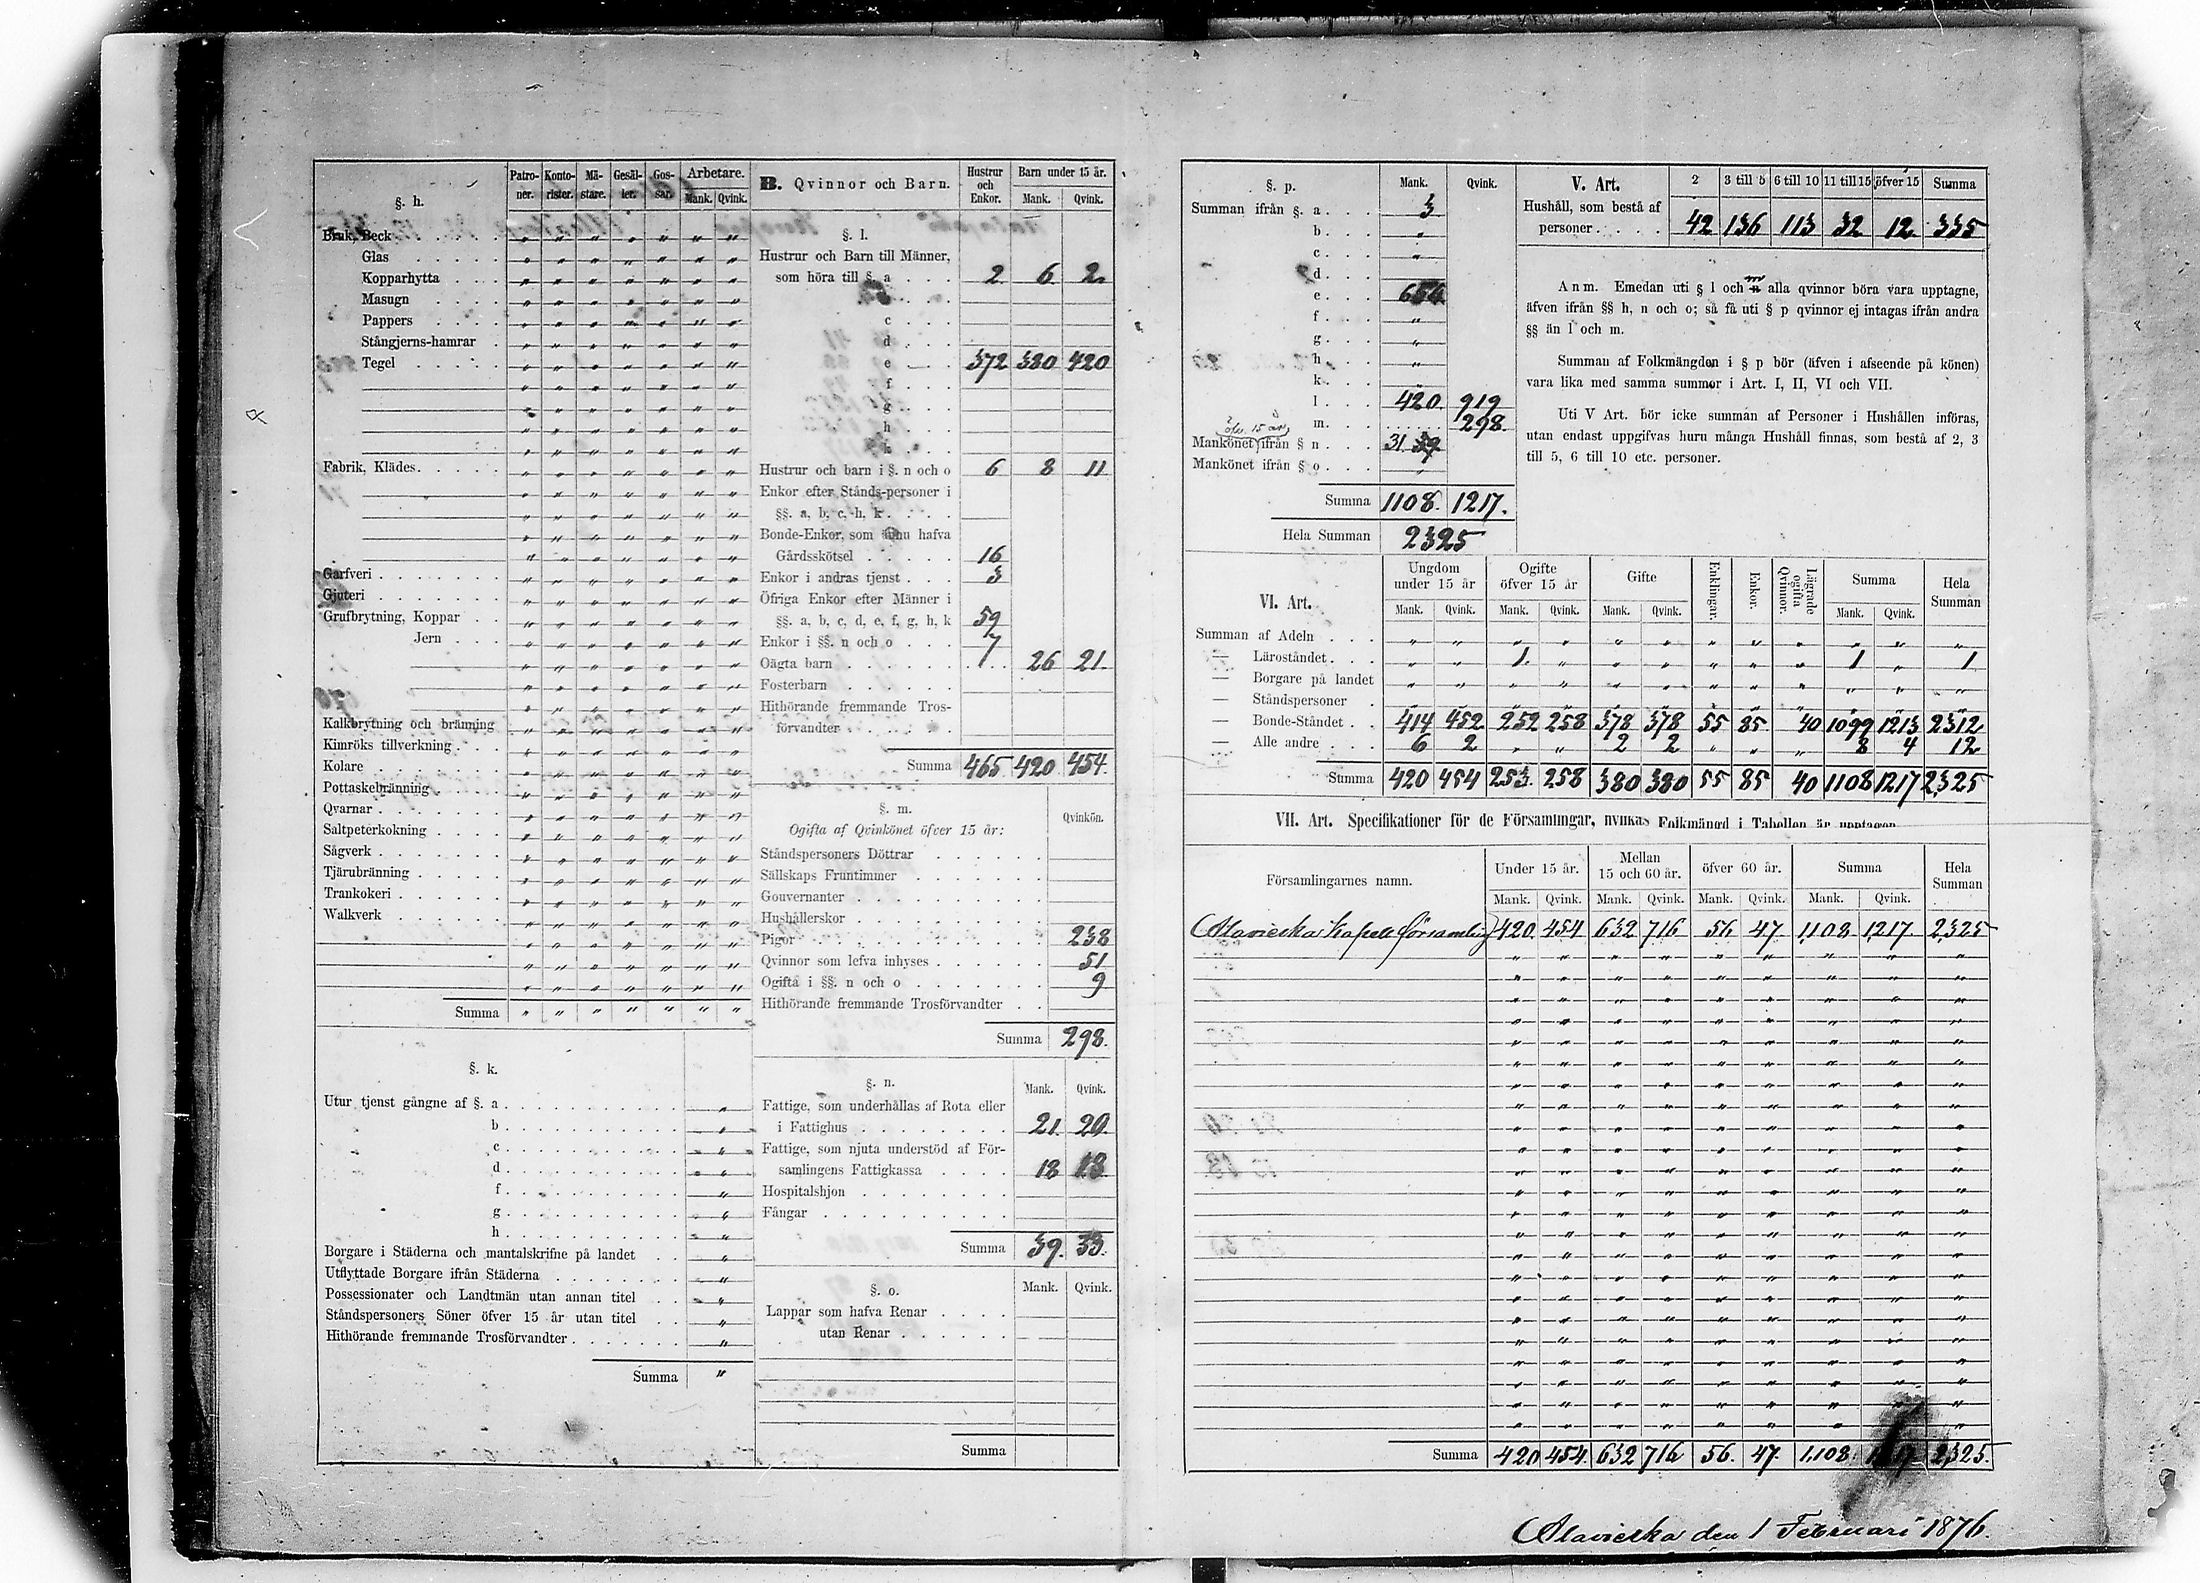 §. h.
Patro-ner. Konto-rister. Mä-stare. Gesäl-ler. Gos-sar. Arbetare.
Mank. Qvink.
Bruk, Beck
Glas
Kopparhytta
Masugn
Pappers
Stångjerns-hamrar
Tegel
Fabrik, Klädes
Garfveri
Gjuteri
Grufbrytning, Koppar
Jern
Kalkbrytning och bränning
Kimröks tillverkning
Kolare
Pottaskebränning
Qvarnar
Saltpeterkokning
Sågverk
Tjärubränning
Trankokeri
Walkverk
Summa " " " " " " "
§. k.
Utur tjenst gångne af §. a "
b "
c "
d "
f "
g "
h "
Borgare i Städerna och mantalskrifne på landet "
Utflyttade Borgare ifrån Städerna "
Possessionater och Landtmän utan annan titel "
Ståndspersoners Söner öfver 15 år utan titel "
Hithörande fremmande Trosförvandter "
Summa "
B. Qvinnor och Barn.
Hustrur och Enkor. Barn under 15 år.
Mank. Qvink.
§. l.
Hustrur och Barn till Männer,
som höra till §. a 2 6 2
c
d
e 372 380 420
f
g
h
k
Hustrur och barn i §. n och o 6 8 11
Enkor efter Stånds-personer i
§§. a, b, c, h, k
Bonde-Enkor, som ännu hafva
Gårdsskötsel 16
Enkor i andras tjenst 3
Öfriga Enkor efter Männer i
§§. a, b, c, d, e, f, g, h, k 59
Enkor i §§. n och o 7
Oägta barn 26 21
Fosterbarn
Hithörande fremmande Tros-
förvandter
Summa 465 420 454
§. m.
Ogifta af Qvinkönet öfver 15 år: Qvinkön.
Ståndspersoners Döttrar
Sällskaps Fruntimmer
Gouvernanter
Hushållerskor
Pigor 238
Qvinnor som lefva inhyses 51
Ogifta i §§. n och o 9
Hithörande fremmande Trosförvandter
Summa 298.
§. n. Mank. Qvink.
Fattige, som underhållas af Rota eller
i Fattighus 21. 20.
Fattige, som njuta understöd af För-
samlingens Fattigkassa 18 13
Hospitalshjon
Fångar
Summa 39. 33.
§. o. Mank. Qvink.
Lappar som hafva Renar
utan Renar
Summa
§. p. Mank. Qvink.
Summan ifrån §. a 3
b "
c "
d
e 654
f "
g "
h "
k "
l 420. 919
m 298.
öfv. 15 år
Mankönet ifrån § n 31 39
Mankönet ifrån § o
Summa 1108. 1217.
Hela Summan 2325
V. Art. 2 3 till 5 6 till 10 11 till 15 öfver 15 Summa
Hushåll, som bestå af
personer 42 136 113 32 12. 335
Anm. Emedan uti § l och m alla qvinnor böra vara upptagne,
äfven ifrån §§ h, n och o; så få uti § p qvinnor ej intagas ifrån andra
§§ än l och m.
Summan af Folkmängden i § p bör (äfven i afseende på könen)
vara lika med samma summor i Art. I, II, VI och VII.
Uti V Art. bör icke summan af Personer i Hushållen införas,
utan endast uppgifvas huru många Hushåll finnas, som bestå af 2, 3
till 5, 6 till 10 etc. personer.
VI. Art.
Ungdom under 15 år Ogifte öfver 15 år Gifte Enklingar. Enkor. Lägrade ogifta Qvinnor. Summa Hela Summan
Mank. Qvink. Mank. Qvink. Mank. Qvink. Mank. Qvink.
Summan af Adeln " " " " " " " " " " " "
— Läroståndet " " 1. " " " " " " 1 " 1
— Borgare på landet " " " " " " " " " " " "
— Ståndspersoner
— Bonde-Ståndet 414 452 252 258 378 378 55 85 40 1099 1213 2312
— Alle andre 6 2 " " 2 2 " " " 8 4 12
Summa 420 454 253. 258 380 380 55 85 40 1108 1217 2325
VII. Art. Specifikationer för de Församlingar, hvilkas Folkmängd i Tabellen är upptagen.
Församlingarnes namn. Under 15 år. Mellan 15 och 60 år. öfver 60 år. Summa Hela Summan
Mank. Qvink. Mank. Qvink. Mank. Qvink. Mank. Qvink.
Alavieska kapell församling 420. 454 632 716 56 47. 1,108. 1217. 2325
Summa 420 454. 632 716 56. 47. 1,108. 2325.
Alavieska den 1 Februari 1876.